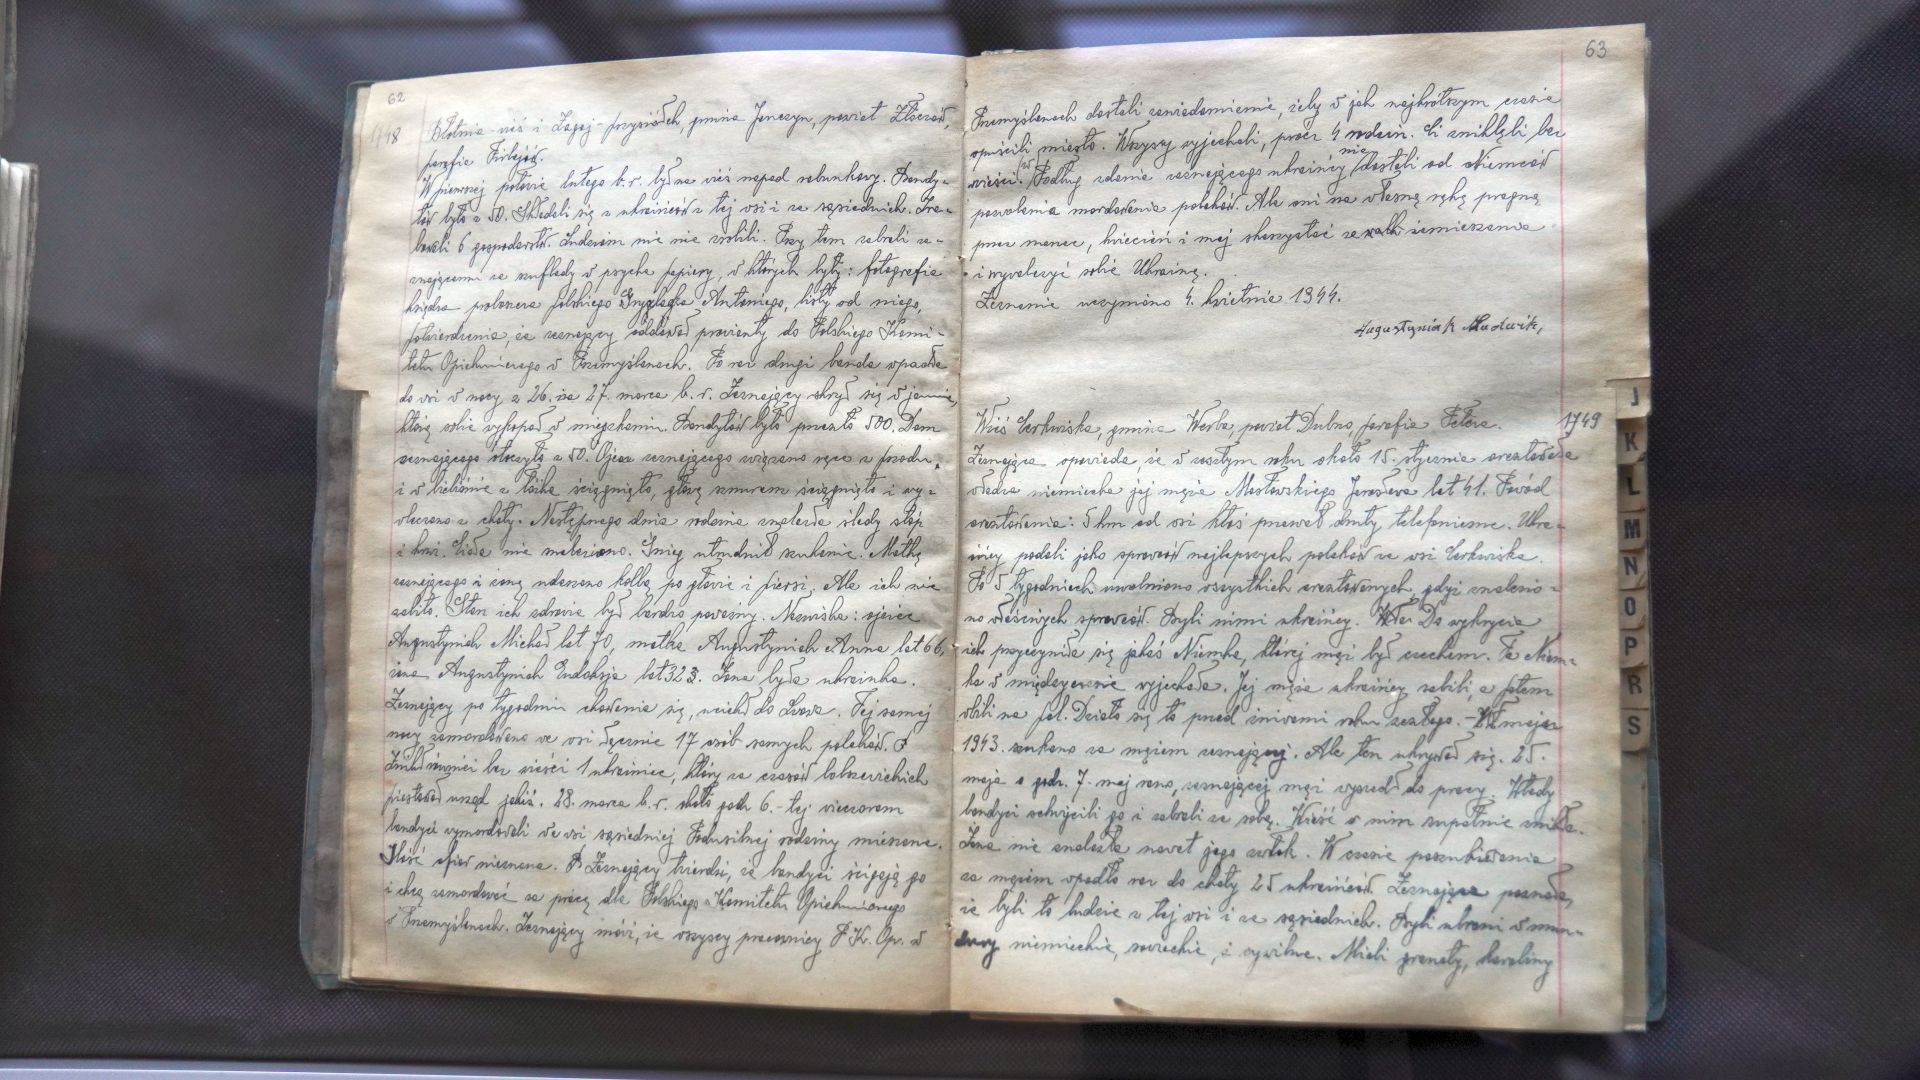 62
1748
Błotnia wieś i Zagaj-przysiółek, gmina Janczyn, powiat Złoczów,
parafia Firlejów.
W pierwszej połowie lutego b.r. był na wieś napad rabunkowy. Bandy-
tów było z 50. Składali się z ukraińców z tej wsi i ze sąsiednich. Zra-
bowali 6 gospodarstw. Ludziom nic nie zrobili. Przy tem zabrali ze-
znającemu ze szuflady w psyche papiery, w których były: fotografia
księdza proboszcza polskiego Antoniego, listy od niego,
potwierdzenia, że zeznający oddawał prowianty do Polskiego Komi-
tetu Opiekuńczego w Przemyślanach. Po raz drugi banda wpadła
do wsi w nocy z 26. na 27. marca b.r. Zeznający skrył się w jamie,
którą sobie wykopał w mieszkaniu. Bandytów było przeszło 500. Dom
zeznającego otoczyło z 50. Ojca zeznającego związano ręce z przodu,
i w bieliźnie z łóżka ściągnięto, głowę sznurem ściągnięto i wy-
wleczono z chaty. Następnego dnia rodzina znalazła ślady stóp
i krwi. Ciała nie znaleziono. Śnieg utrudnił szukanie. Matkę
zeznającego i żonę uderzono kolbą po głowie i piersi. Ale ich nie
zabito. Stan ich zdrowia był bardzo poważny. Nazwiska: ojciec
Augustyniak Michał lat 70, matka Augustyniak Anna lat 66,
żona Augustyniak Eudoksja lat 32. Żona była ukrainka.
Zeznający po tygodniu chowania się, uciekł do Lwowa. Tej samej
nocy zamordowano we wsi łącznie 17 osób samych polaków.
Znikł również bez wieści 1 ukrainiec, który za czasów bolszewickich
piastował urząd jakiś. 28. marca b.r. około godz 6.-tej wieczorem
bandyci wymordowali we wsi sąsiedniej Podusilnej rodziny mieszane.
Ilość ofiar nieznana. Zeznający twierdzi, że bandyci ścigają go
i chcą zamordować za pracę dla Polskiego Komitetu Opiekuńczego
w Przemyślanach. Zeznający mówi, że wszyscy pracownicy P.K.Op. w
63
Przemyślanach dostali zawiadomienie, żeby w jak najkrótszym czasie
opuścili miasto. Wszyscy wyjechali, prócz 4 rodzin. Ci zniknęli bez
wieści. Podług zdania zeznającego ukraińcy nie dostali od Niemców
pozwolenia mordowania polaków. Ale oni na własną rękę pragną
przez marzec, kwiecień i maj skorzystać ze zamieszania
i wywalczyć sobie Ukrainę.
Zeznanie uczyniono 4. kwietnia 1944.
Augustyniak Ludwik,
Wieś Cerkwiska, gmina Werba, powiat Dubno, parafia Ptcza. 1749
Zeznająca opowiada, że w zeszłym roku około 15. stycznia aresztowała
władza niemiecka jej męża Masłowskiego Jarosława lat 41. Powód
aresztowania: 5 km od wsi ktoś przerwał druty telefoniczne. Ukra-
ińcy podali jako sprawców najlepszych polaków ze wsi Cerkwiska.
Po 5 tygodniach uwolniono wszystkich aresztowanych, gdyż znalezio-
no właściwych sprawców. Byli nimi ukraińcy. Do wykrycia
ich przyczyniła się jakaś Niemka, której mąż był czechem. Ta Niem-
ka w międzyczasie wyjechała. Jej męża ukraińcy zabili, a potem
Działo się to przed żniwami roku zeszłego. - W maju
1943. szukano za mężem zeznającej. Ale ten ukrywał się. 25.
maja o godz. 7-mej rano, zeznającej mąż wyszedł do pracy. Wtedy
bandyci schwycili go i zabrali ze sobą. Wieść o nim zupełnie znikła.
Żona nie znalazła nawet jego zwłok. W czasie poszukiwania
za mężem wpadło raz do chaty 25 ukraińców. Zeznająca poznała,
że byli to ludzie z tej wsi i ze sąsiednich. Byli ubrani w mun-
dury niemieckie, sowieckie, i cywilne. Mieli granaty, karabiny
J
K
L
M
N
O
P
R
S